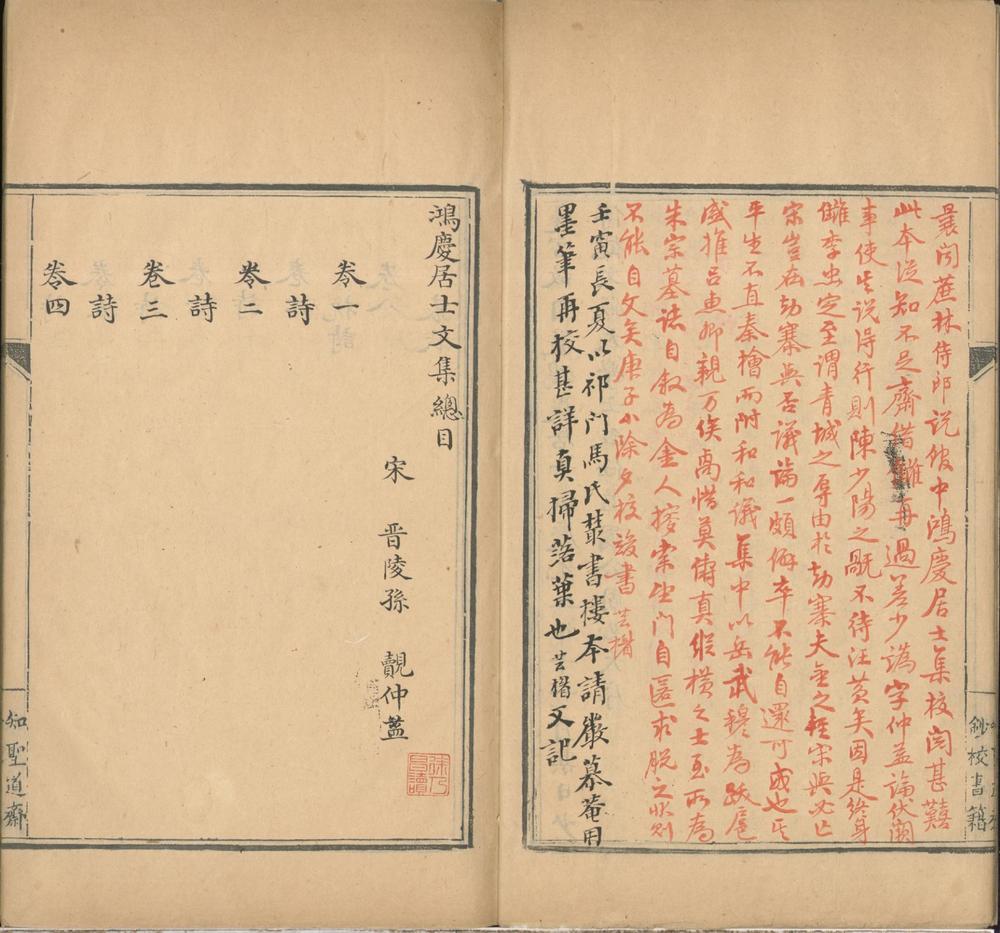 曩閱蔗林侍郎說俊中鴻慶居士集校閱甚囏
此本從知不足齋借讎再過差少譌字仲益論伏闕
事使其說得行則陳少陽之戮不待汪黃矣因是終身
讎李忠定至謂青城之辱由於劫寨夫金之輕宋與必亡
宋豈在劫寨與否議論一頗僻卒不能自還可或也其
平生不直秦檜而附和和議集中以岳武穆為跋扈
盛推呂惠卿親万俟卨惜莫儔真傾橫之士至所為
朱宗墓誌自敘為金人搜索坐門自匿求脫之狀則
不能自文矣庚子小除夕校竣書 芸楣
壬寅長夏以祁門馬氏叢書樓本請嚴慕菴用
墨筆再校甚詳真掃落葉也芸楣又記
鈔校書籍
鴻慶居士文集總目
宋 晉陵孫 覿仲益
卷一
詩
卷二
詩
卷三
詩
卷四
知聖道齋